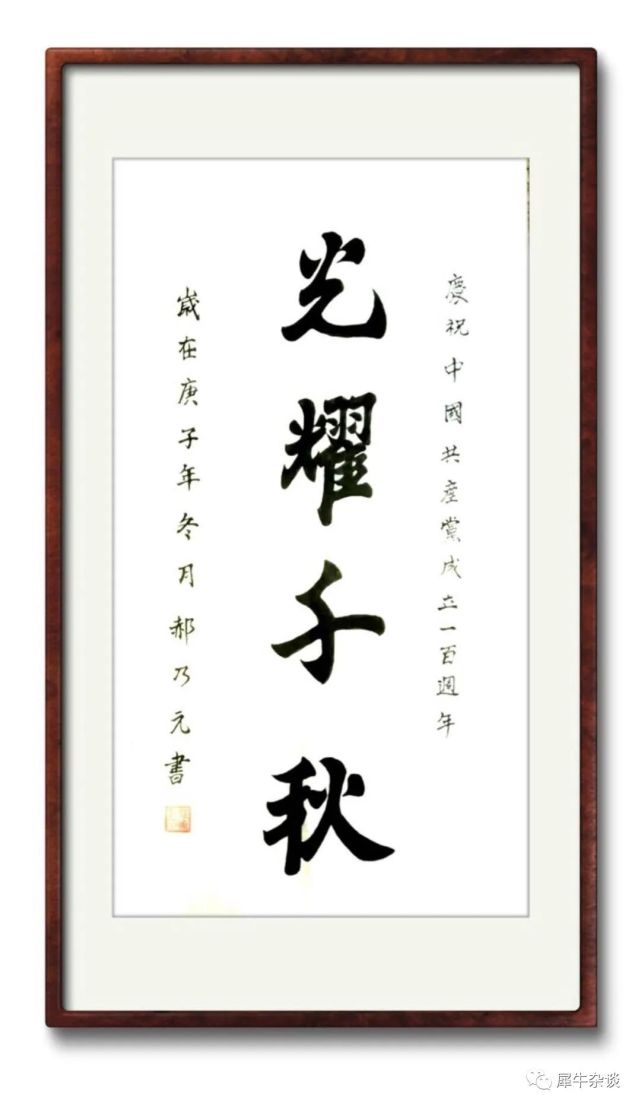 慶祝中國共産黨成立一百週年
光耀千秋
歲在庚子年冬月郝乃元書
犀牛杂谈